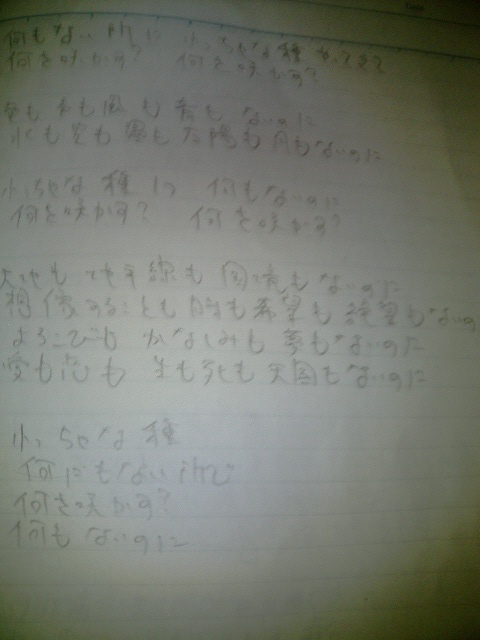 何もない所に 小っちゃな種 やってきて
何を咲かす? 何を咲かす?
色も木も風も音もないのに
水も空も雲も太陽も月もないのに
小っちゃな種1つ 何もないのに
何を咲かす? 何を咲かす?
大地も地平線も国境もないのに
想像することも 時も希望も絶望もないの
よろこびも かなしみも 夢もないのに
愛も恋も 生も死も天国もないのに
小っちゃな種
何にもない所で
何を咲かす?
何もないのに